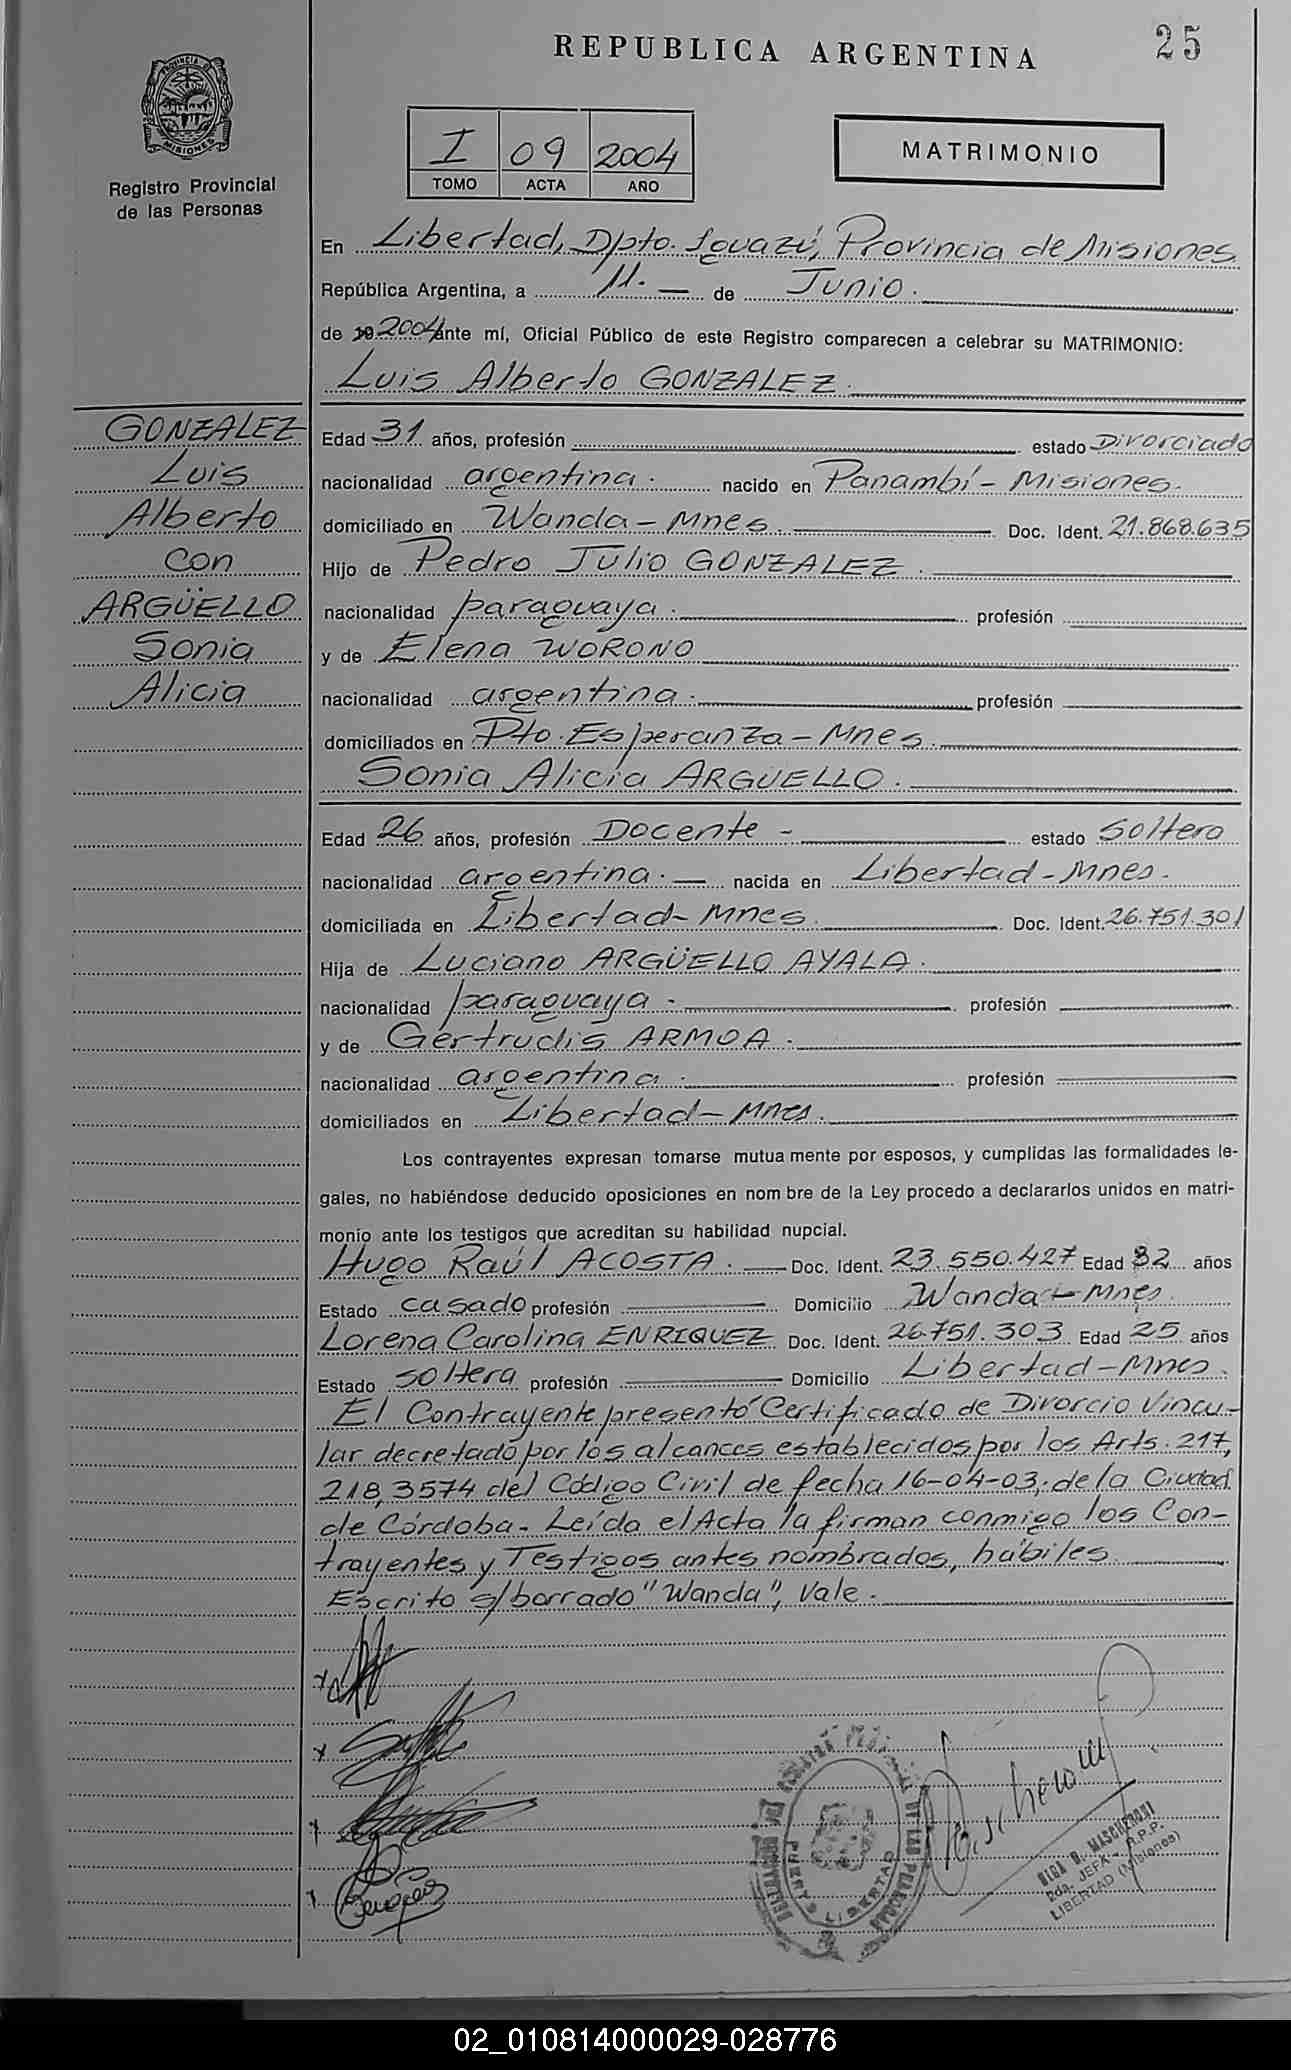 REPUBLICA ARGENTINA
25
PROVINCIA DE
MISIONES
Registro Provincial
de las Personas
I 09 2004
TOMO ACTA AÑO
MATRIMONIO
En Libertad, Dpto. Iguazú, Provincia de Misiones
República Argentina, a 11.— de Junio.
de 19 2004 ante mí, Oficial Público de este Registro comparecen a celebrar su MATRIMONIO:
Luis Alberto GONZALEZ.
GONZALEZ
Luis
Alberto
con
ARGÜELLO
Sonia
Alicia
Edad 31 años, profesión estado Divorciado
nacionalidad argentina. nacido en Panambí - Misiones.
domiciliado en Wanda - Mnes. Doc. Ident. 21.868.635
Hijo de Pedro Julio GONZALEZ.
nacionalidad paraguaya. profesión
y de Elena WORONO
nacionalidad argentina. profesión
domiciliados en Pto. Esperanza - Mnes.
Sonia Alicia ARGUELLO.
Edad 26 años, profesión Docente - estado Soltera
nacionalidad argentina. — nacida en Libertad - Mnes.
domiciliada en Libertad - Mnes. Doc. Ident. 26.751.301
Hija de Luciano ARGÜELLO AYALA.
nacionalidad paraguaya. profesión
y de Gertrudis ARMOA.
nacionalidad argentina. profesión
domiciliados en Libertad - Mnes.
Los contrayentes expresan tomarse mutua mente por esposos, y cumplidas las formalidades le-
gales, no habiéndose deducido oposiciones en nom bre de la Ley procedo a declararlos unidos en matri-
monio ante los testigos que acreditan su habilidad nupcial.
Hugo Raúl ACOSTA. — Doc. Ident. 23.550.427 Edad 32 años
Estado casado profesión Domicilio Wanda - Mnes.
Lorena Carolina ENRIQUEZ Doc. Ident. 26.751.303 Edad 25 años
Estado soltera profesión Domicilio Libertad - Mnes.
El Contrayente presentó Certificado de Divorcio Vincu-
lar decretado por los alcances establecidos por los Arts. 217,
218, 3574 del Código Civil de fecha 16-04-03, de la Ciudad
de Córdoba. Leída el Acta la firman conmigo los Con-
trayentes y Testigos antes nombrados, hábiles
Escrito s/borrado "Wanda", Vale.
LIBERTAD
DE LAS PERSONAS
MASCHERONI
JEFA R.P.P.
LIBERTAD (Misiones)
02_010814000029-028776